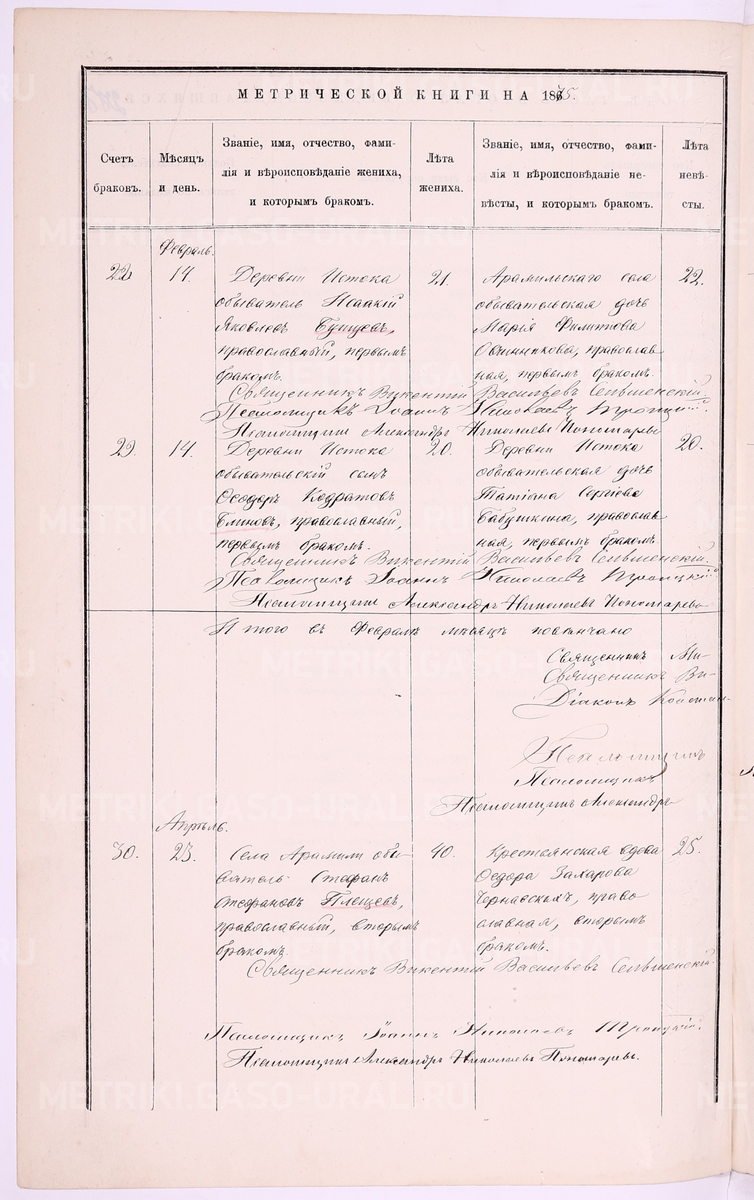 МЕТРИЧЕСКОЙ КНИГИ НА 1875.
Счетъ браковъ.
Мѣсяцъ и день.
Званіе, имя, отчество, фами-
лія и вѣроисповѣданіе жениха,
и которымъ бракомъ.
Лѣта жениха.
Званіе, имя, отчество, фами-
лія и вѣроисповѣданіе не-
вѣсты, и которымъ бракомъ.
Лѣта невѣ-
сты.
Февраль.
14.
Деревни Истока
обыватель Исаакій
Яковлевъ
православный, первымъ
бракомъ.
21.
Арамильскаго села
обывательская дочь
Марья Филиппова
Овчинникова, православ
ная, первымъ бракомъ.
22.
Священникъ Викентій Васильевъ
Псаломщикъ Іоаннъ Николаевъ Троицкій.
Псаломщикъ Александръ Николаевъ Пономаревъ
29.
14.
Деревни Истока
обывательскій сынъ
Ѳеодоръ Кодратовъ
Блиновъ, православный,
первымъ бракомъ.
20.
Деревни Истока
обывательская дочь
Татіана Сергіева
Бабушкина, православ
ная, первымъ бракомъ.
20.
Священникъ Викентій Васильевъ
Псаломщикъ Іоаннъ Николаевъ Троицкій
Псаломщикъ Александръ Николаевъ Пономаревъ
Итого въ Февралѣ мѣсяцѣ повѣнчано
Священникъ Ми-
Священникъ Ви-
Діаконъ Констан-
Псаломщикъ
Псаломщикъ
Псаломщикъ Александръ
Апрѣль.
30.
23.
Села Арамили обы
ватель Стефанъ
Стефановъ Плещевъ,
православный, вторымъ
бракомъ.
40.
Крестьянская вдова
Ѳедора Захарова
Чернавскихъ, право
славная, вторымъ
бракомъ.
25.
Священникъ Викентій Васильевъ
Псаломщикъ Іоаннъ Николаевъ Троицкій.
Псаломщикъ Александръ Николаевъ Пономаревъ.
METRIKI.GASO-URAL.RU